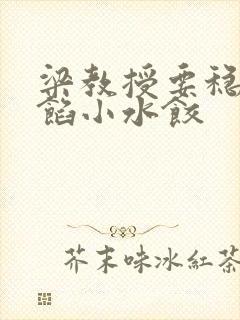 梁教授要稳
馅小水餃
芥末味冰紅茶